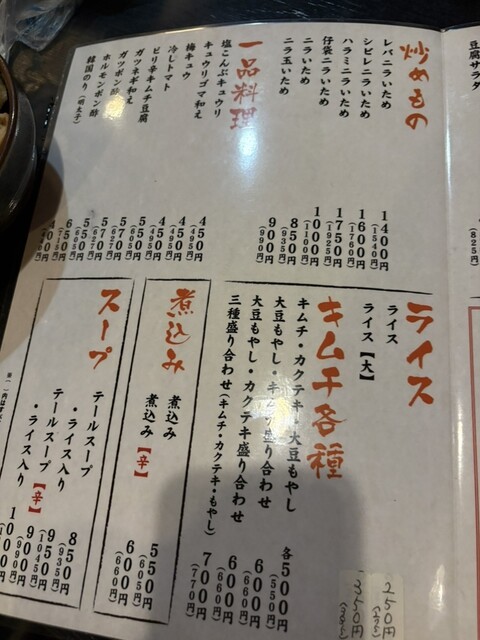 豆腐サラダ
(825円)
炒めもの
レバニラいため 1400円 (1540円)
シビレニラいため 1600円 (1760円)
ハラミニラいため 1750円 (1925円)
仔袋ニラいため 1000円 (1100円)
ニラいため 850円 (935円)
ニラ玉いため 900円 (990円)
一品料理
塩こんぶキュウリ 450円 (495円)
キュウリゴマ和え 450円 (495円)
梅キュウ 450円 (495円)
冷しトマト 450円 (495円)
ピリ辛キムチ豆腐 550円 (605円)
ガツネギ和え 570円 (627円)
ガツポン酢 570円 (627円)
ホルモンポン酢 550円 (605円)
韓国のり(明太子) 650円 (715円)
400円
ライス
ライス 250円
ライス【大】 350円
キムチ各種
キムチ・カクテキ・大豆もやし 各500円 (550円)
大豆もやし・キムチ盛り合わせ 600円 (660円)
大豆もやし・カクテキ盛り合わせ 600円 (660円)
三種盛り合わせ(キムチ・カクテキ・もやし) 700円 (770円)
煮込み
煮込み 550円
煮込み【辛】 600円 (660円)
スープ
テールスープ 850円 (935円)
・ライス入り 950円 (1045円)
テールスープ【辛】 900円 (990円)
・ライス入り 1000円